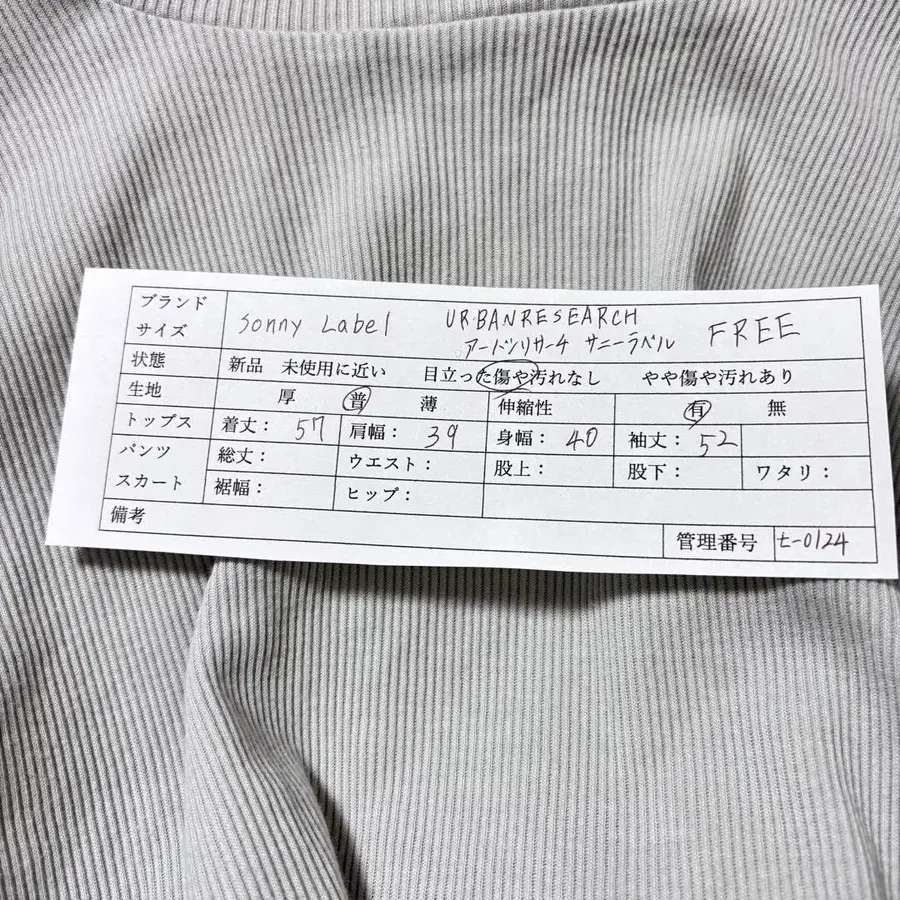 ブランド
サイズ
Sonny Label URBANRESEARCH
アードンリサーチ サニーラベル FREE
状態 新品 未使用に近い 目立った傷や汚れなし やや傷や汚れあり
生地 厚 普 薄 伸縮性 有 無
トップス 着丈: 57 肩幅: 39 身幅: 40 袖丈: 52
パンツ
スカート
総丈: ウエスト: 股上: 股下: ワタリ:
裾幅: ヒップ:
備考
管理番号 t-0124